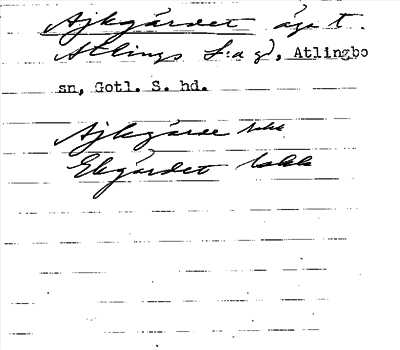 Ajkgärdet äga t.
Atlings L:a gd, Atlingbo
sn, Gotl. S. hd.
Ajkgärde
Ekgärdet